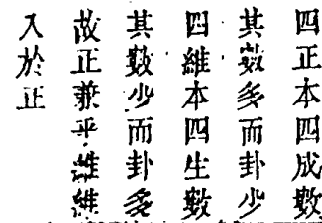 四正本四成數
其數多而卦少
四維本四生數
其數少而卦多
故正兼乎維維
入於正